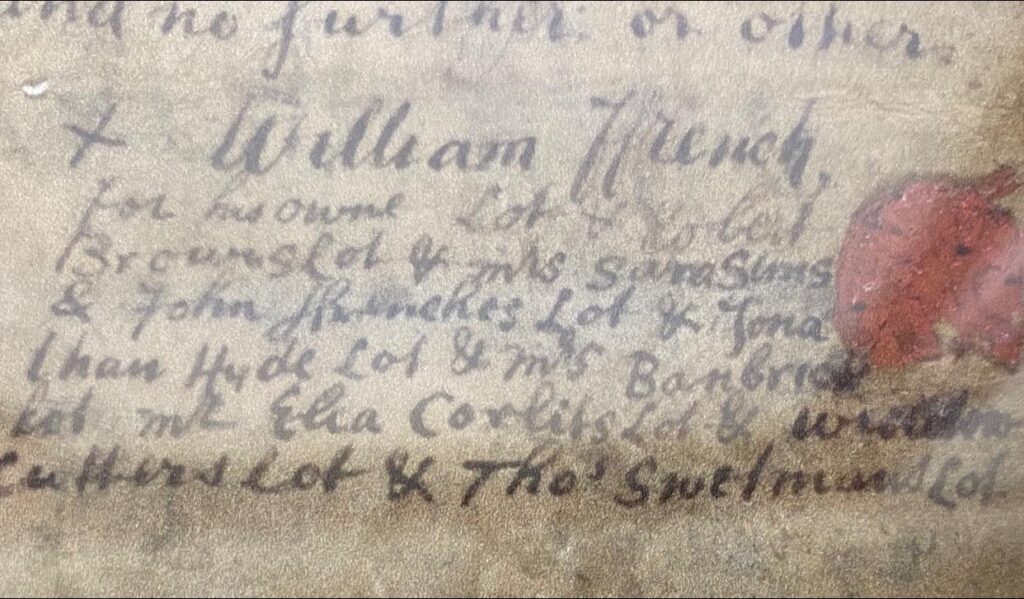 and no further or other
x William Ffrench,
for his owne Lot & Robert
Browns Lot & mrs Sara Sims
& John Ffrenches Lot & Jona
than Hyde Lot & mrs Banbrick
Lot mr Elia Corlits Lot & William
Cutters Lot & Tho's Swetmans Lot